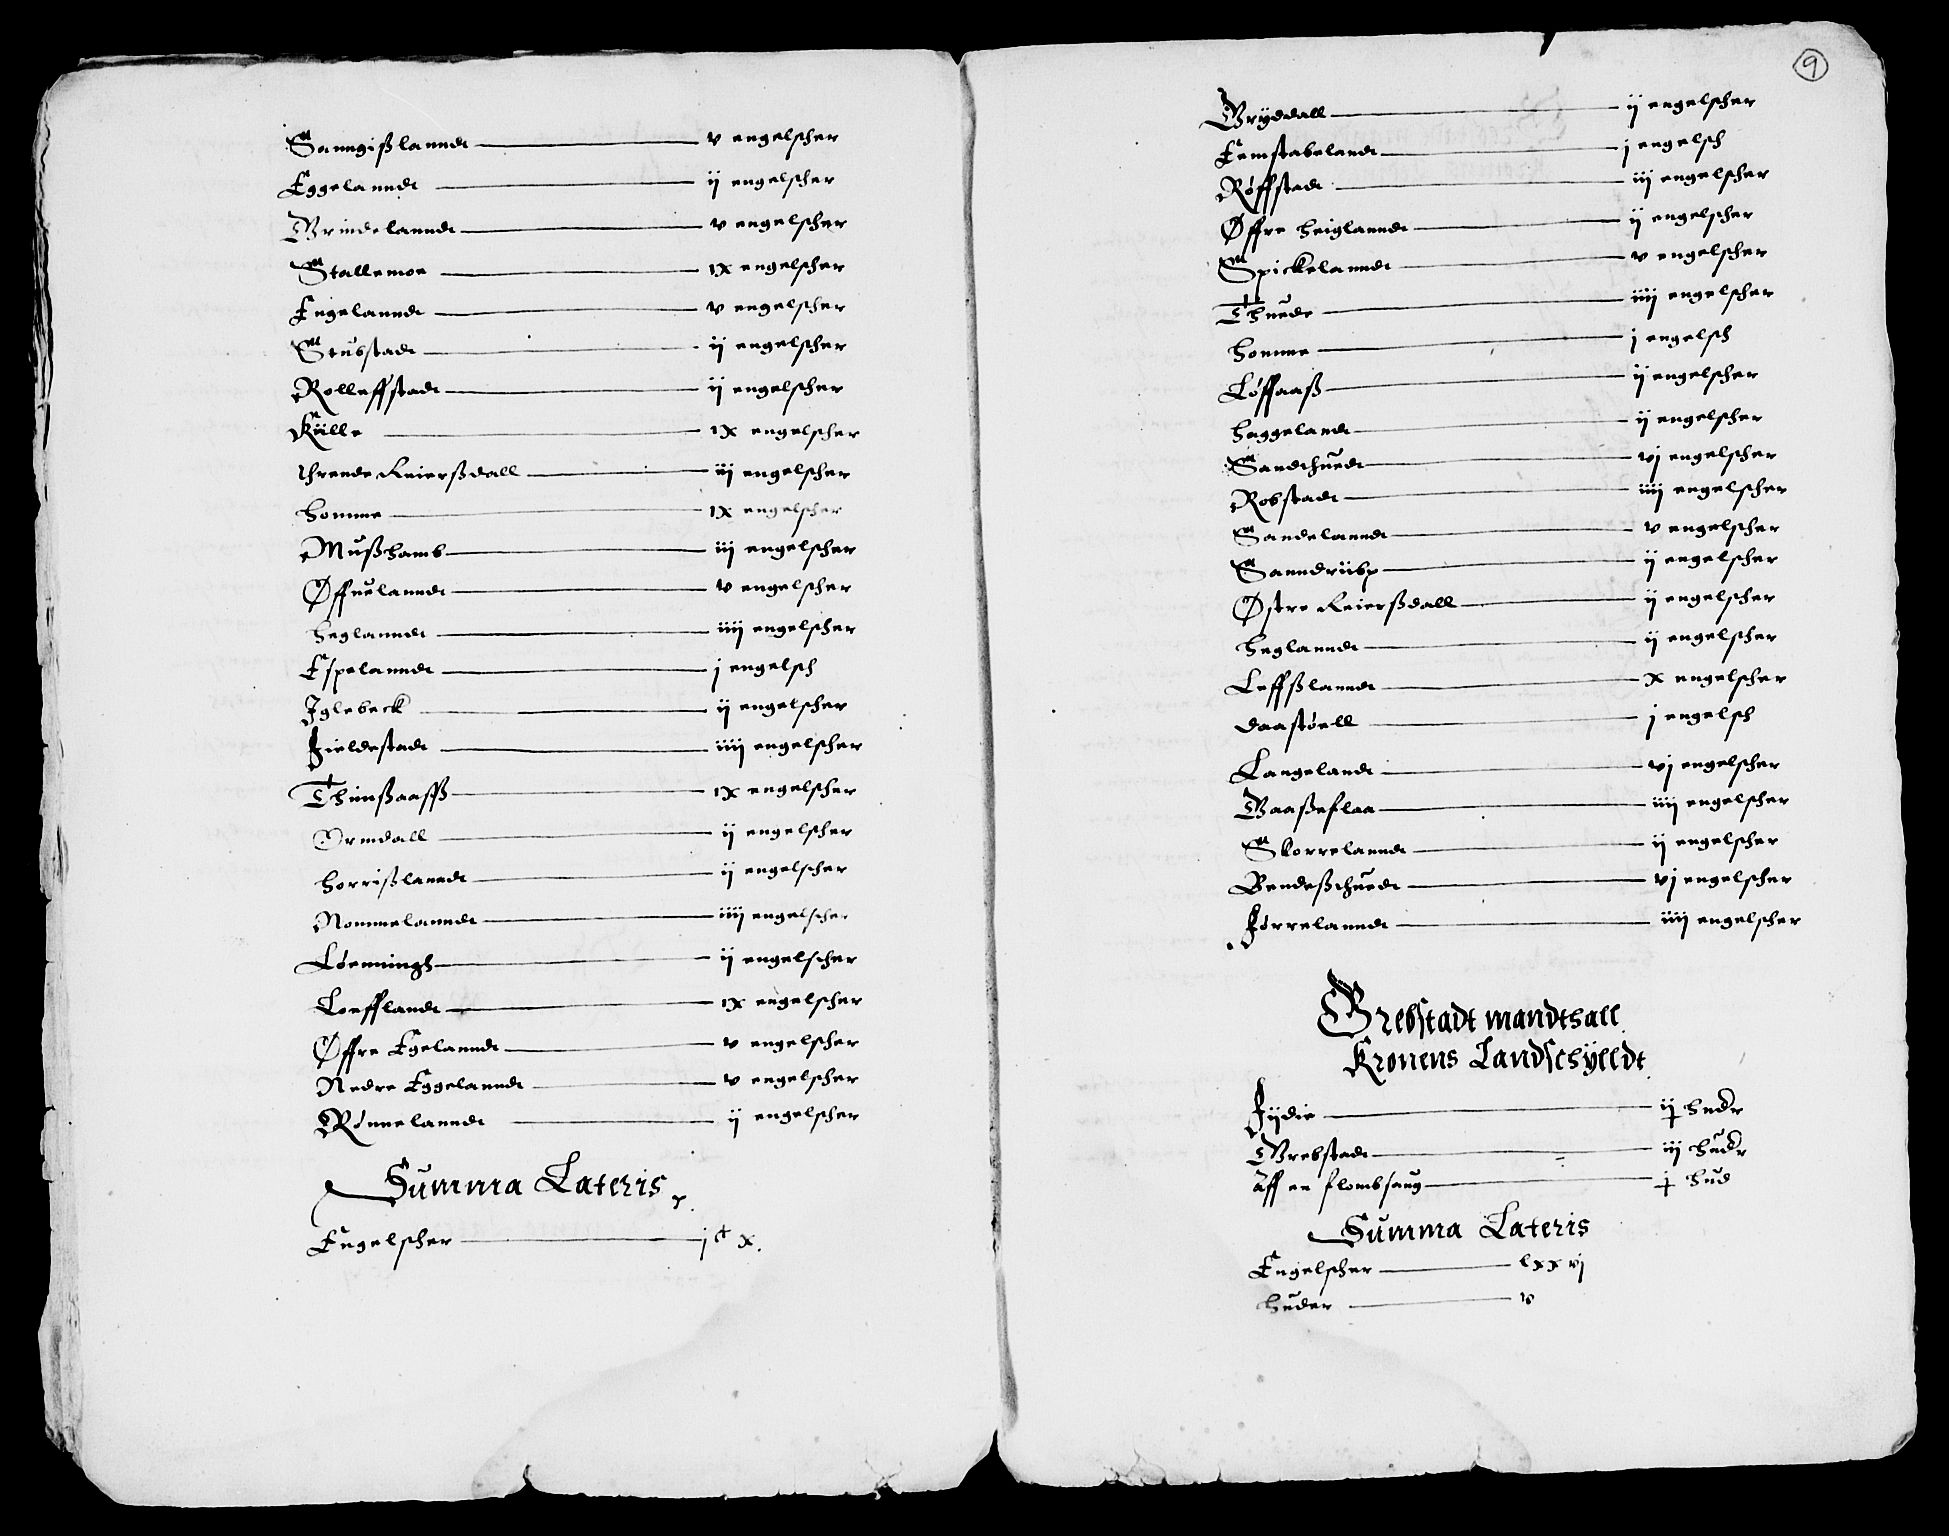 Sanngißlanndt v engelscher
Eggelanndt ij engelscher
Wrindelanndt v engelscher
Stallemoe ix engelscher
Engelanndt v engelscher
Stubstadt ij engelscher
Rolleffstadt ij engelscher
Külle ix engelscher
Thrende Reierßdall iij engelscher
homme ix engelscher
Mußhamb iij engelscher
Øffuelanndt v engelscher
heglanndt iiij engelscher
Espelanndt j engelsch
Iglebeck ij engelscher
Fieldestadt iiij engelscher
Thimßaasß ix engelscher
Ormdall ij engelscher
horrißlanndt ij engelscher
Nommelanndt iiij engelscher
Løenningh ij engelscher
Loefflandt ix engelscher
Øffre Egelanndt v engelscher
Nedre Eggelanndt v engelscher
Rønnelanndt ij engelscher
Summa Lateris
Engelscher j c x.
9
Wrÿddall ij engelscher
Femstabelandt j engelsch
Røffstadt iij engelscher
Øffre heiglanndt ij engelscher
Spickelanndt v engelscher
Thuede iiij engelscher
homme j engelsch
Løffaaß ij engelscher
haggelandt ij engelscher
Sandthuedt vj engelscher
Robstadt iiij engelscher
Sandelanndt v engelscher
Sanndrübp ij engelscher
Østre Reierßdall ij engelscher
heglanndt ij engelscher
Leffßlanndt x engelscher
daastøell j engelsch
Langelandt vj engelscher
Waaßeflaa iiij engelscher
Skorrelanndt ij engelscher
Bendeßhuedt vj engelscher
Jørrelanndt iiij engelscher
Grebstadt mandthall
Kronens Landschÿlldt
Jÿdie ij hudr
Wrebstadt iij hudr
aff en flombsaug j hud
Summa Lateris
Engelscher lxxvj
huder v